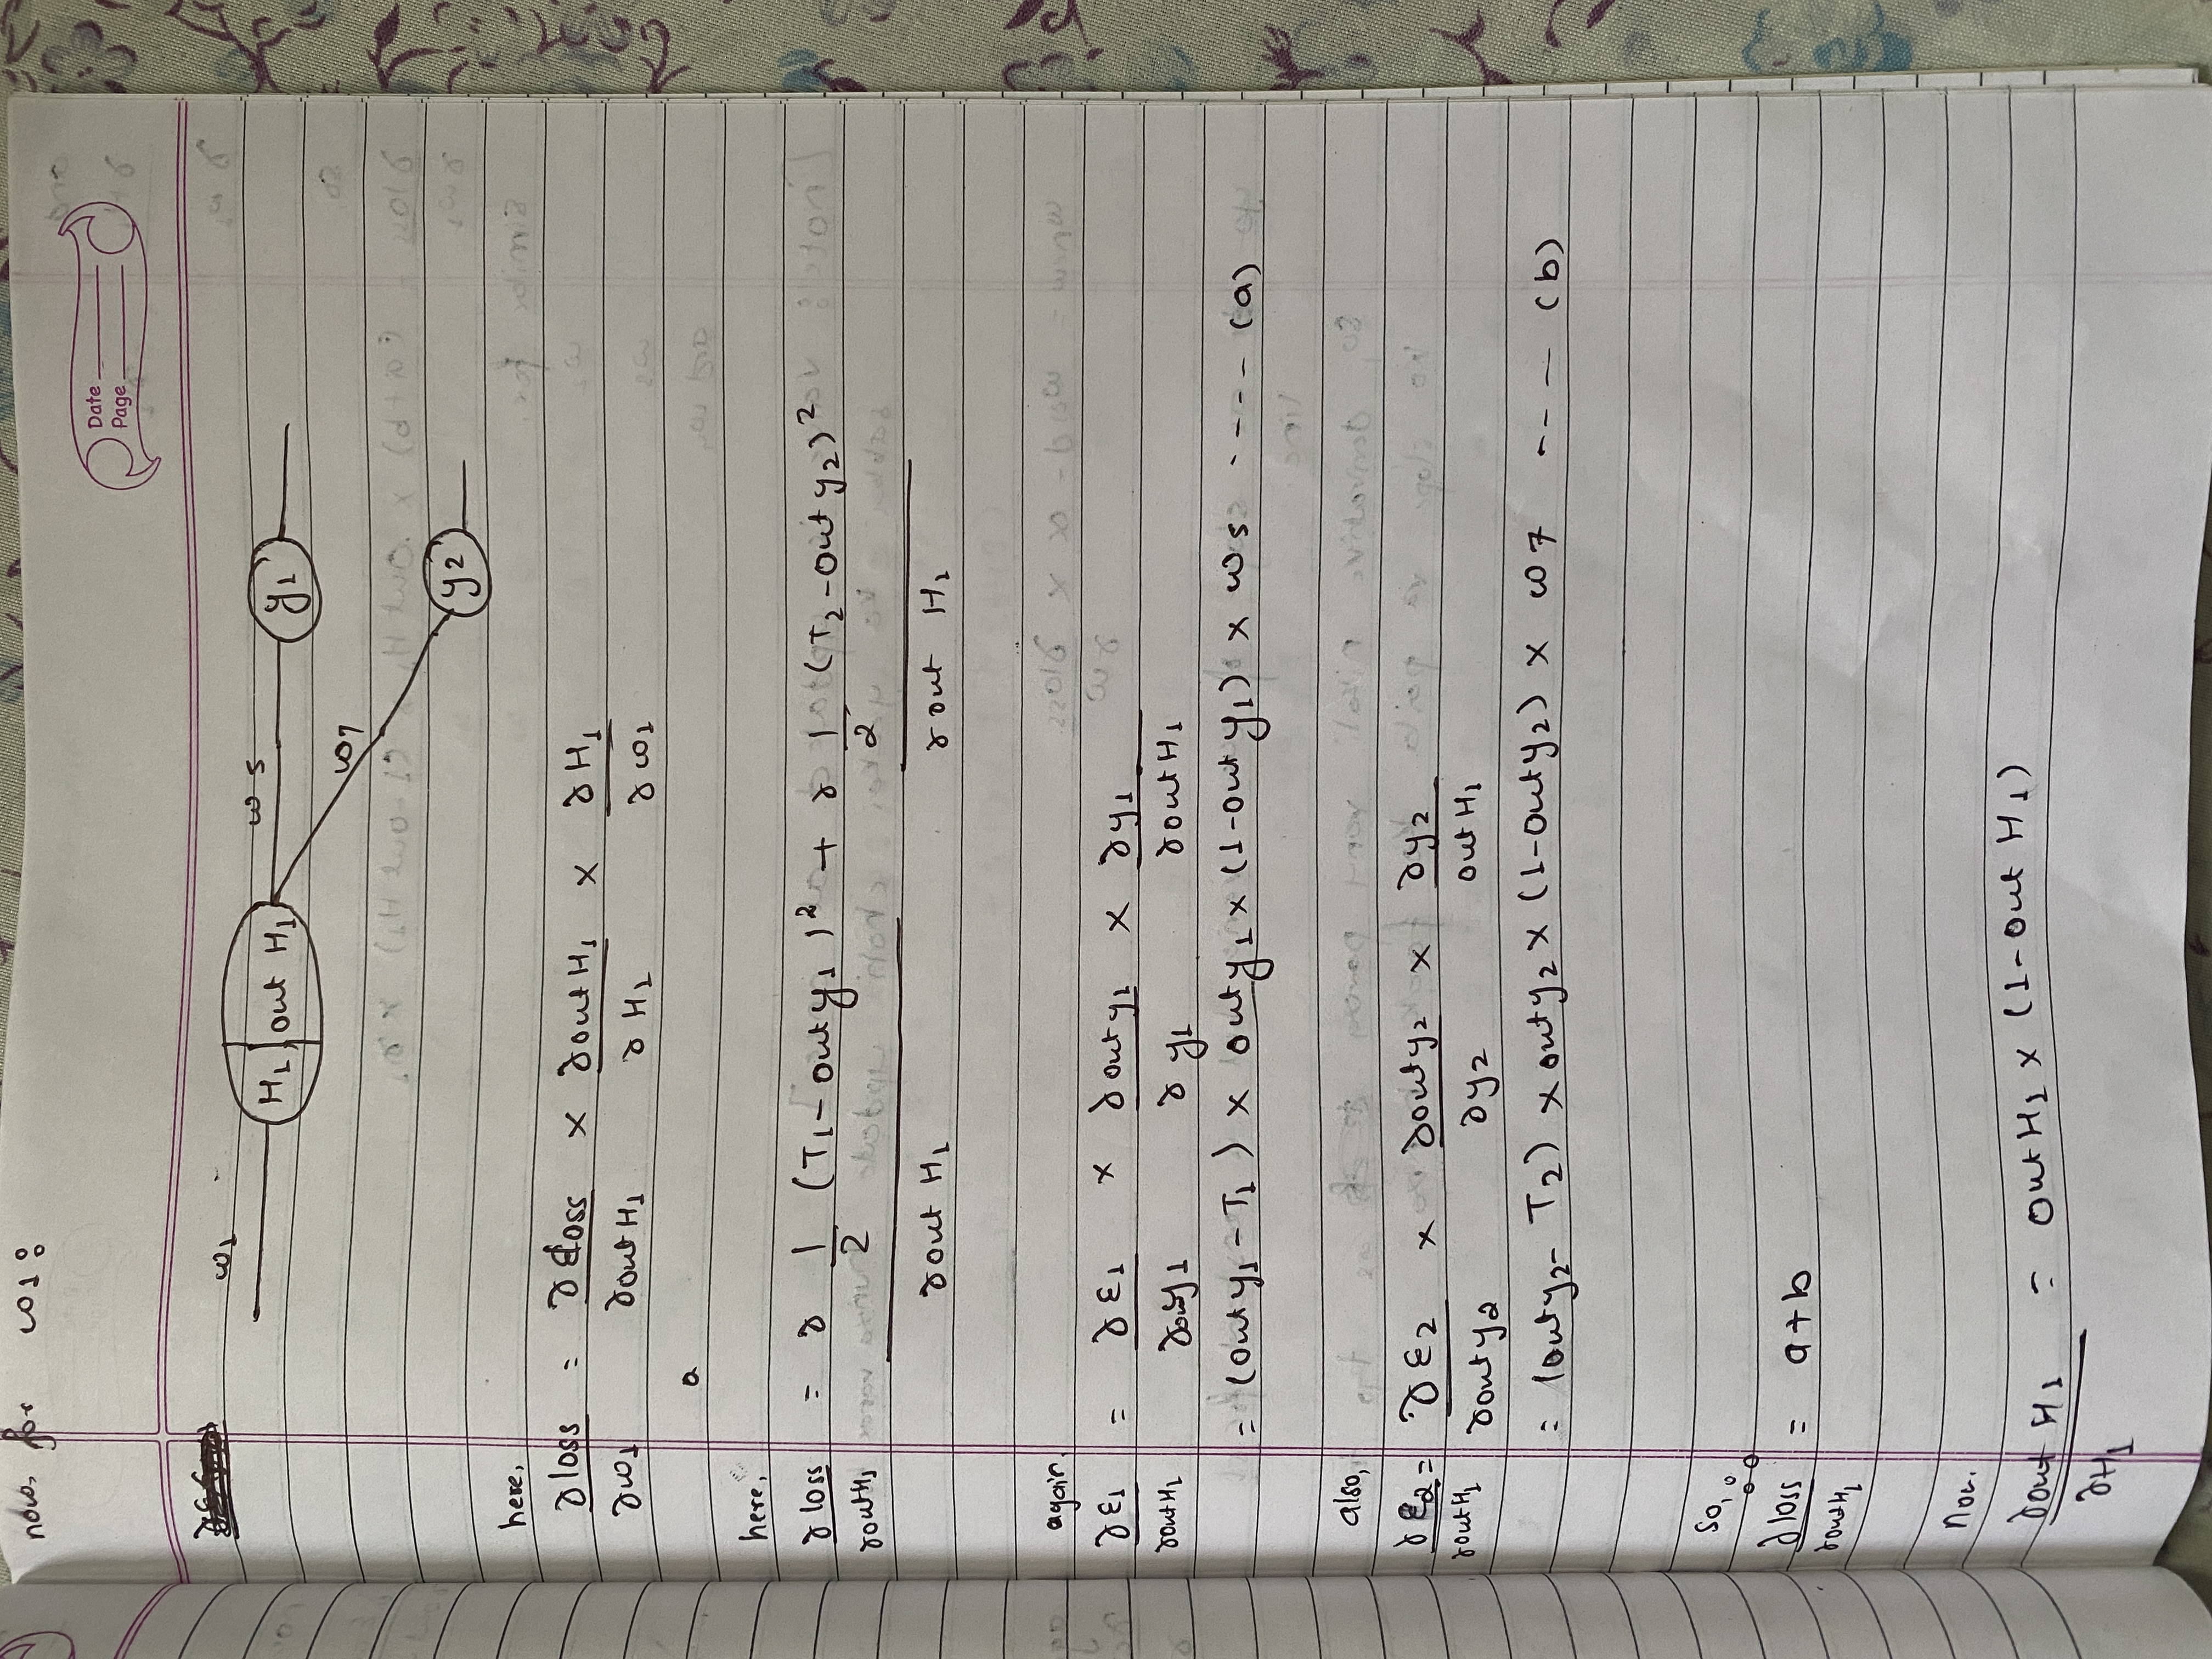 now, for w1:
Date
Page
w1
H1 | out H1
w5
y1
w7
y2
here,
∂loss/∂w1 = ∂loss/∂outH1 × ∂outH1/∂H1 × ∂H1/∂w1
a
here,
∂loss/∂outH1 = ∂ 1/2 (T1-outy1)²/∂out H1 + ∂ 1/2 (T2-outy2)²/∂out H1
again,
∂ε1/∂outH1 = ∂ε1/∂outy1 × ∂outy1/∂y1 × ∂y1/∂outH1
= (outy1-T1) × outy1 × (1-outy1) × w5 ---- (a)
also,
∂ε2/∂outH1 = ∂ε2/∂outy2 × ∂outy2/∂y2 × ∂y2/outH1
= (outy2-T2) × outy2 × (1-outy2) × w7 ---- (b)
so,
∂loss/∂outH1 = a+b
Now.
∂out H1/∂H1 = outH1 × (1-out H1)